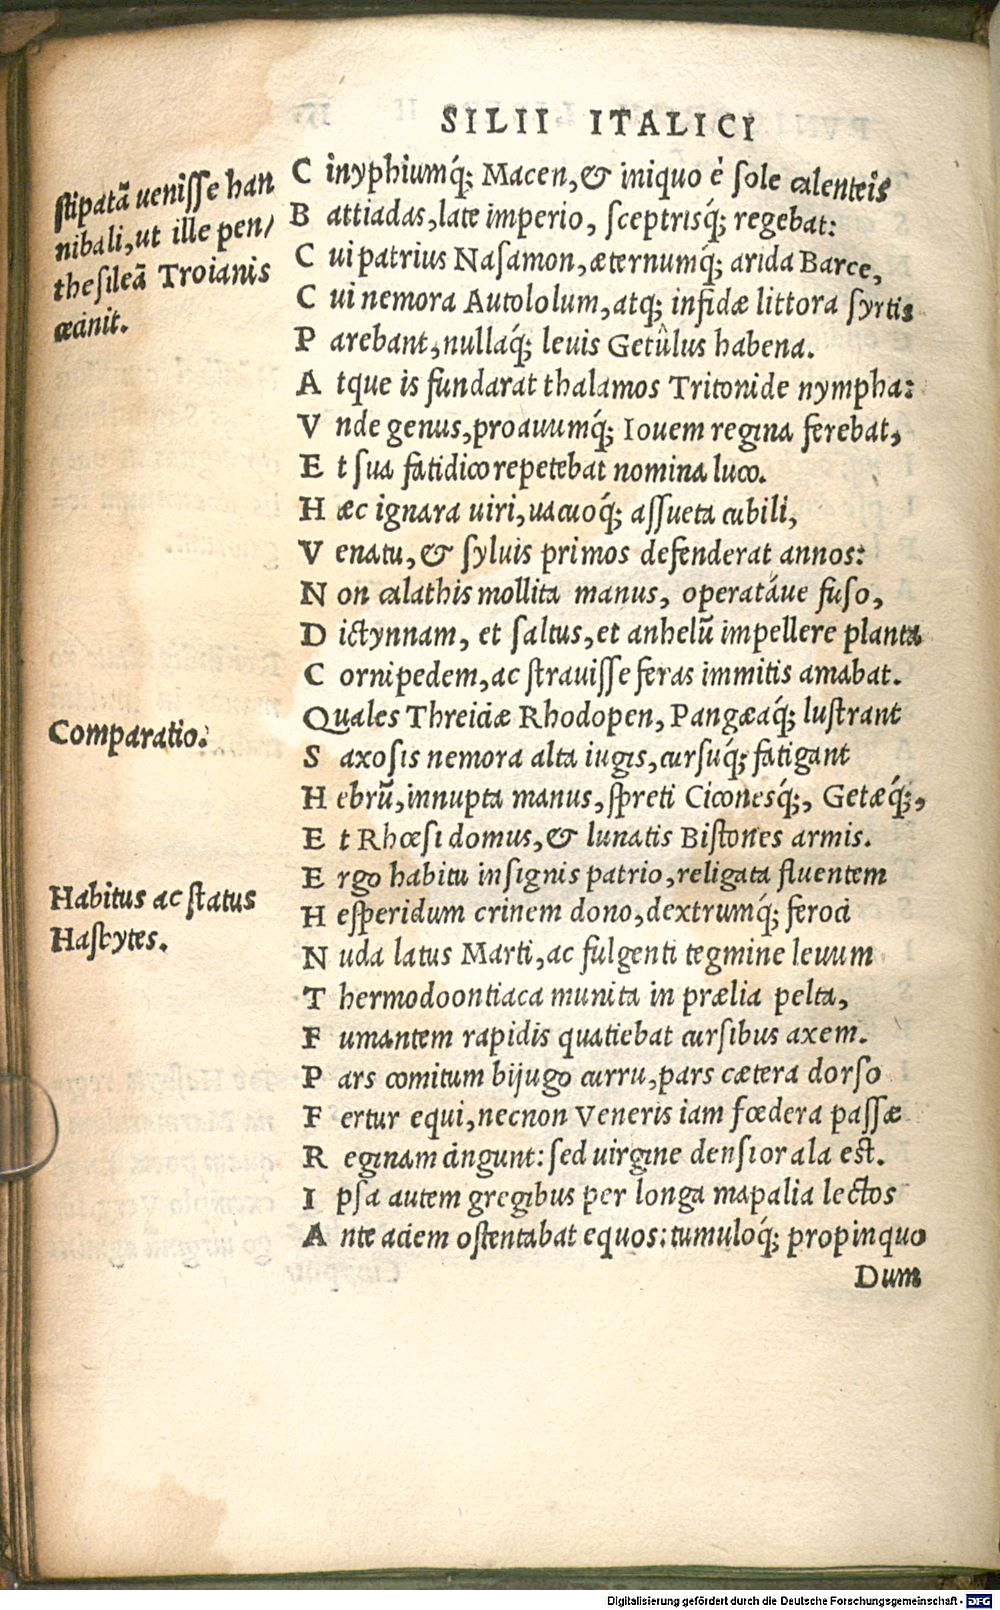 SILII ITALICI
stipatā uenisse han
nibali, ut ille pen/
thesileā Troianis
æcinit.
Cinyphiumq́; Macen, & iniquo è sole calenteis
Battiadas, late imperio, sceptrisq́; regebat:
Cui patrius Nasamon, æternumq́; arida Barce,
Cui nemora Autololum, atq; infidæ littora syrtis
Parebant, nullaq́; leuis Getûlus habena.
Atque is fundarat thalamos Tritonide nympha:
Vnde genus, proauumq́; Iouem regina ferebat,
Et sua fatidico repetebat nomina luco.
Hæc ignara uiri, uacuoq́; assueta cubili,
Venatu, & syluis primos defenderat annos:
Non calathis mollita manus, operatáue fuso,
Dictynnam, et saltus, et anhelū impellere planta
Cornipedem, ac strauisse feras immitis amabat.
Quales Threiciæ Rhodopen, Pangæaq́; lustrant
Comparatio.
Saxosis nemora alta iugis, cursuq́; fatigant
Hebrū, innupta manus, spreti Ciconesq́;, Getæq́;,
Et Rhœsi domus, & lunatis Bistones armis.
Ergo habitu insignis patrio, religata fluentem
Habitus ac status
Hasbytes.
Hesperidum crinem dono, dextrumq́; feroci
Nuda latus Marti, ac fulgenti tegmine leuum
Thermodoontiaca munita in prælia pelta,
Fumantem rapidis quatiebat cursibus axem.
Pars comitum bijugo curru, pars cætera dorso
Fertur equi, necnon Veneris iam fœdera passæ
Reginam cingunt: sed uirgine densior ala est.
Ipsa autem gregibus per longa mapalia lectos
Ante aciem ostentabat equos: tumuloq́; propinquo
Dum
Digitalisierung gefördert durch die Deutsche Forschungsgemeinschaft - DFG